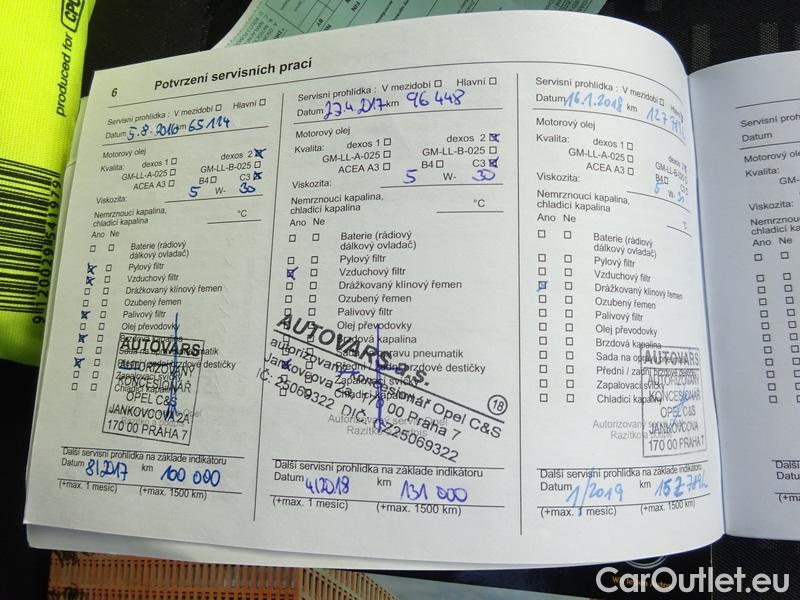 produced for
6 Potvrzení servisních prací
Servisní prohlídka : V mezidobí Hlavní
Datum 5.8.2016 km 65 114
Motorový olej
Kvalita: dexos 1 dexos 2
GM-LL-A-025 GM-LL-B-025
ACEA A3 B4 C3
Viskozita: 5 W- 30
Nemrznoucí kapalina,
chladicí kapalina °C
Ano Ne
Baterie (rádiový
dálkový ovladač)
Pylový filtr
Vzduchový filtr
Drážkovaný klínový řemen
Ozubený řemen
Palivový filtr
Olej převodovky
Brzdová kapalina
Sada na opravu pneumatik
Přední / zadní brzdové destičky
Zapalovací svíčky
Chladicí kapalina
AUTOVARS
AUTORIZOVANÝ
KONCESIONÁŘ
OPEL C&S
JANKOVCOVA 2A
170 00 PRAHA 7
Další servisní prohlídka na základě indikátoru
Datum 8/2017 km 100 000
(+max. 1 měsíc) (+max. 1500 km)
Servisní prohlídka : V mezidobí Hlavní
Datum 27.4.2017 km 96 448
Motorový olej
Kvalita: dexos 1 dexos 2
GM-LL-A-025 GM-LL-B-025
ACEA A3 B4 C3
Viskozita: 5 W- 30
Nemrznoucí kapalina,
chladicí kapalina °C
Ano Ne
Baterie (rádiový
dálkový ovladač)
Pylový filtr
Vzduchový filtr
Drážkovaný klínový řemen
Ozubený řemen
Palivový filtr
Olej převodovky
Brzdová kapalina
Sada na opravu pneumatik
Přední / zadní brzdové destičky
Zapalovací svíčky
Chladicí kapalina
AUTOVARS a.s.
autorizovaný koncesionář Opel C&S
Jankovcova 2a, 170 00 Praha 7
IČ: 25069322 DIČ: CZ25069322
18
Další servisní prohlídka na základě indikátoru
Datum 4/2018 km 131 000
(+max. 1 měsíc) (+max. 1500 km)
Servisní prohlídka : V mezidobí Hlavní
Datum 16.1.2018 km
Motorový olej
Kvalita: dexos 1 dexos 2
GM-LL-A-025 GM-LL-B-025
ACEA A3 B4 C3
Viskozita: 5 W- 30
Nemrznoucí kapalina,
chladicí kapalina °C
Ano Ne
Baterie (rádiový
dálkový ovladač)
Pylový filtr
Vzduchový filtr
Drážkovaný klínový řemen
Ozubený řemen
Palivový filtr
Olej převodovky
Brzdová kapalina
Sada na opravu pneumatik
Přední / zadní brzdové destičky
Zapalovací svíčky
Chladicí kapalina
AUTOVARS
AUTORIZOVANÝ
KONCESIONÁŘ
OPEL C&S
JANKOVCOVA
170 00 PRAHA 7
Další servisní prohlídka na základě indikátoru
Datum 1/2019 km
(+max. 1 měsíc) (+max. 1500 km)
Datum
Motorový
Kvalita:
Viskozita:
Ano Ne
Datum
CarOutlet.eu